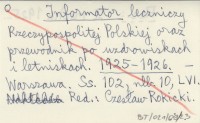 Informator leczniczy
Rzeczypospolitej Polskiej oraz
przewodnik po uzdrowiskach
i letniskach. 1925-1926. -
Warszawa. Ss. 102, nlb 10, LVI.
Red.: Czesław Rokicki.